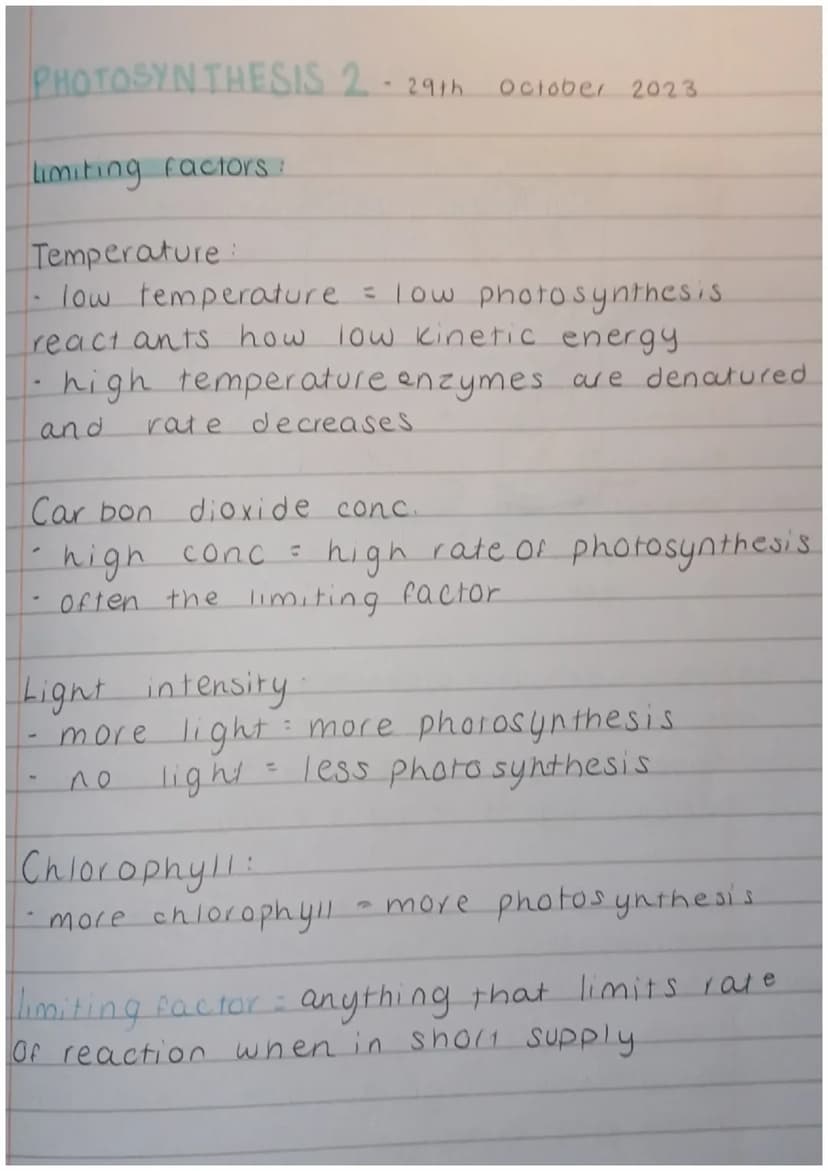 PHOTOSYNTHESIS 2 - 29th October 2023
Limiting factors:
Temperature:
· low temperature = low photosynthesis
reactants how low kinetic energy
· high temperature enzymes are denatured
and rate decreases
Carbon dioxide conc.
· high conc = high rate of photosynthesis
· often the limiting factor
Light intensity
- more light = more photosynthesis
- no light = less photosynthesis
Chlorophyll:
· more chlorophyll = more photosynthesis
limiting factor = anything that limits rate
of reaction when in short supply